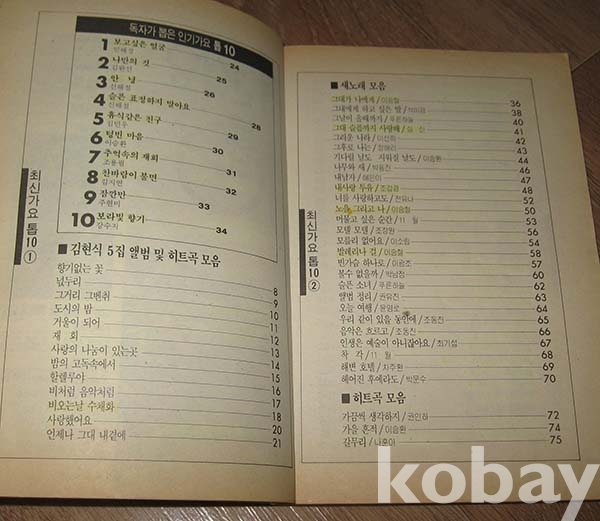 독자가 뽑은 인기가요 톱 10
1 보고싶은 얼굴 24
민해경
2 나만의 것 25
김완선
3 안녕 26
신해철
4 슬픈 표정하지 말아요 28
신해철
5 휴식같은 친구 29
김민우
6 텅빈 마음 30
이승환
7 추억속의 재회 31
조용필
8 찬바람이 불면 32
김지연
9 잠깐만 33
주현미
10 보라빛 향기 34
강수지
최신가요 톱10 ①
■ 김현식 5집 앨범 및 히트곡 모음
향기없는 꽃 8
넋두리 9
그거리 그벤취 10
도시의 밤 11
거울이 되어 12
재 회 13
사랑의 나눔이 있는곳 14
밤의 고독속에서 15
할렐루야 16
비처럼 음악처럼 17
비오는날 수채화 18
사랑했어요 20
언제나 그대 내곁에 21
최신가요 톱10 ②
■ 새노래 모음
그대가 나에게/이승철 36
그대에게 하고 싶은 말/ 38
그날이 올때까지/푸른하늘 40
그대 슬픔까지 사랑해/ 41
그리운 나라/이선희 42
그후로 나는/장혜리 43
기다린 날도 지워질 날도/이승환 44
나무와 새/박길진 45
내남자/혜은이 46
내사랑 투유/조갑경 48
너를 사랑하고도/전유나 52
노을 그리고 나/이승철 50
머물고 싶은 순간/11월 53
모델 모델/조정원 56
모를리 없어요/이소림 54
발레리나 걸/이승철 60
빈가슴 하나로/이광조 57
볼수 없을까/박남정 58
슬픈 소녀/푸른하늘 62
앨범 정리/권유진 63
오늘 여행/윤영로 64
우리 같이 있을 동안에/조동진 65
음악은 흐르고/조동진 66
인생은 예술이 아니잖아요/최기섭 67
착 각/11월 68
해변 호텔/차주환 69
헤어진 후에라도/박문수 70
■ 히트곡 모음
가끔씩 생각하지/권인하 72
가을 흔적/이승환 74
갈무리/나훈아 75
kobay